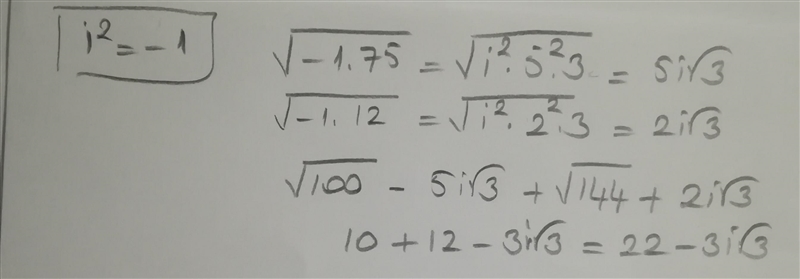 i² = -1
√-1.75 = √i².5².3 = 5i√3
√-1.12 = √i².2².3 = 2i√3
√100 - 5i√3 + √144 + 2i√3
10 + 12 - 3i√3 = 22 - 3i√3